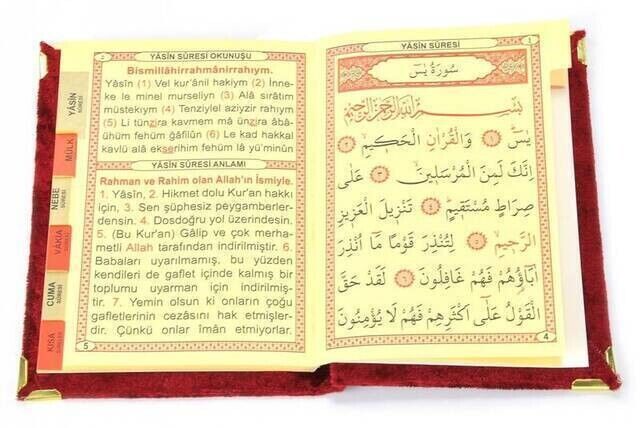 YÂSİN
SÛRESİ
MÜLK
NEBE
SÛRESİ
VÂKIA
CUMA
SÛRESİ
KISA
YÂSİN SÛRESİ OKUNUŞU
Bismillâhirrahmânirrahıym.
Yâsîn (1) Vel kur'ânil hakiym (2) İnne-
ke le minel murseliyn (3) Alâ sırâtim
müstekıym (4) Tenziylel aziyzir rahıym
(5) Li tünzira kavmem mâ ünzira âbâ-
ühüm fehüm ğâfilûn (6) Le kad hakkal
kavlü alâ ekserihim fehüm lâ yü'minûn
YÂSİN SÛRESİ ANLAMI
Rahman ve Rahim olan Allah'ın İsmiyle.
1. Yâsîn, 2. Hikmet dolu Kur'an hakkı
için, 3. Sen şüphesiz peygamberler-
densin. 4. Dosdoğru yol üzerindesin.
5. (Bu Kur'an) Gâlip ve çok merha-
metli Allah tarafından indirilmiştir. 6.
Babaları uyarılmamış, bu yüzden
kendileri de gaflet içinde kalmış bir
toplumu uyarman için indirilmiş-
tir. 7. Yemin olsun ki onların çoğu
gafletlerinin cezasını hak etmişler-
dir. Çünkü onlar îmân etmiyorlar.
5
YÂSİN SÛRESİ
سُورَةُ يٰسٓ
بِسْمِ اللّٰهِ الرَّحْمٰنِ الرَّحِيمِ
يٰسٓ ﴿١﴾ وَالْقُرْاٰنِ الْحَكِيمِ ﴿٢﴾
اِنَّكَ لَمِنَ الْمُرْسَلِينَ ﴿٣﴾ عَلٰى
صِرَاطٍ مُسْتَقِيمٍ ﴿٤﴾ تَنْزِيلَ الْعَزِيزِ
الرَّحِيمِ ﴿٥﴾ لِتُنْذِرَ قَوْمًا مَٓا اُنْذِرَ
اٰبَٓاؤُهُمْ فَهُمْ غَافِلُونَ ﴿٦﴾ لَقَدْ حَقَّ
الْقَوْلُ عَلٰٓى اَكْثَرِهِمْ فَهُمْ لَا يُؤْمِنُونَ
4